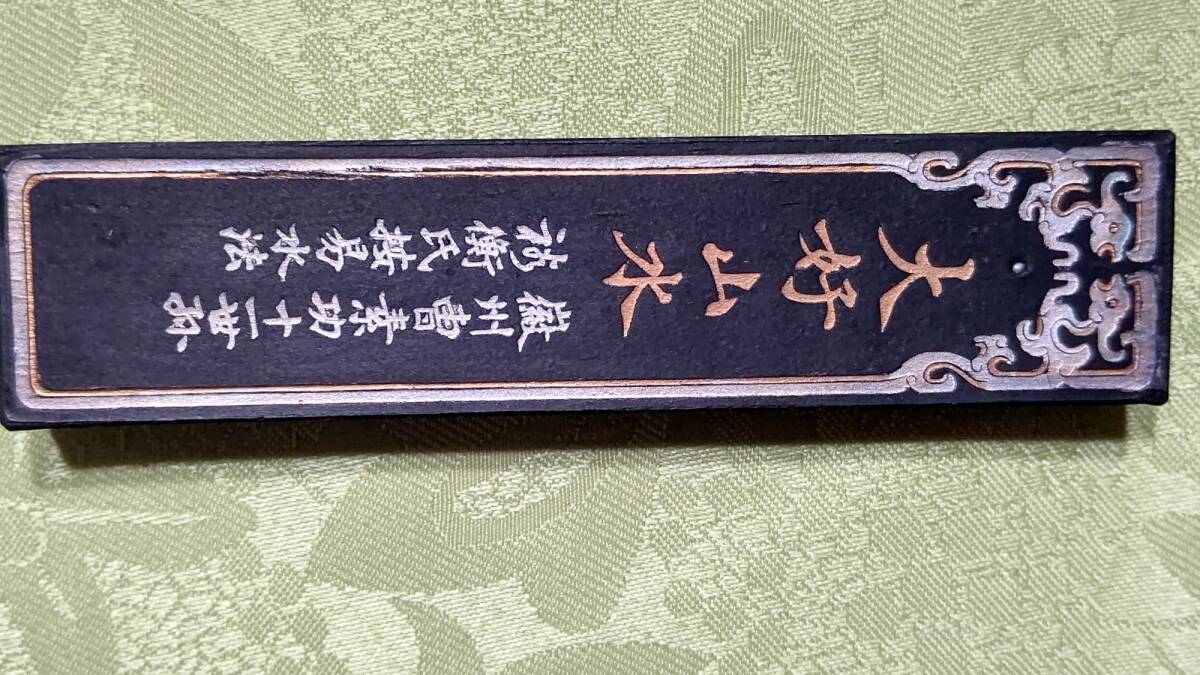 大好山水
徽州曹素功十一世孫
衡氏按易水法